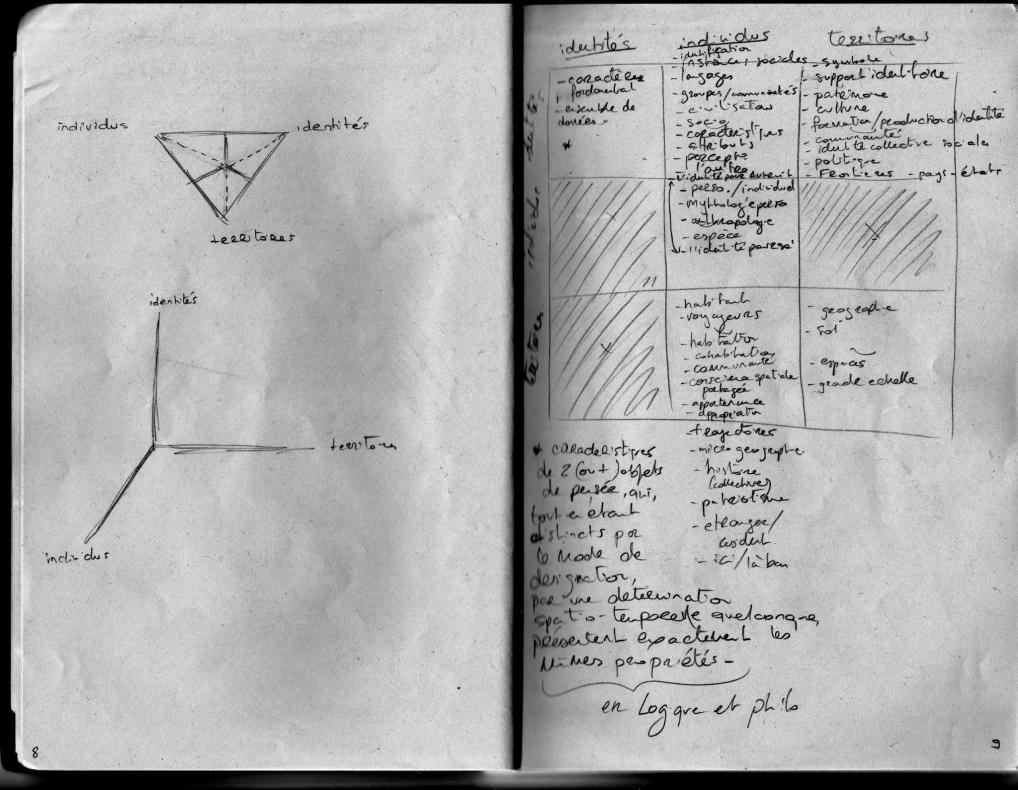 individus
identités
territoires
identités
territoires
individus
8
identités
individus
territoires
identités
individus
territoires
- caractère
fondamental
- ensemble de
données
*
- identification
- instances sociales
- langages
- groupes/communautés
- civilisation
- socio
- caractéristiques
- attributs
- percepts
l'autre
- l'identité pour Autrui
- symbole
- support identitaire
- patrimoine
- culture
- formation/production d'identité
communauté
- identité collective sociale
- politique
- Frontières - pays - états
- perso./individuel
- mythologie perso
- anthropologie
- espèce
- l'identité pour soi
- habitants
- voyageurs
- habitation
- cohabitation
- communauté
- conscience spatiale
partagée
- appartenance
- appropriation
trajectoires
- micro géographie
- histoire
(collective)
- patriotisme
- étranger/
- ici/là bas
- géographie
- sol
- espaces
- grande échelle
* caractéristiques
de 2 (ou +) objets
de pensée, qui,
tout en étant
distincts par
le mode de
désignation,
par une détermination
spatio-temporelle quelconque,
présentent exactement les
mêmes propriétés -
en Logique et philo
9